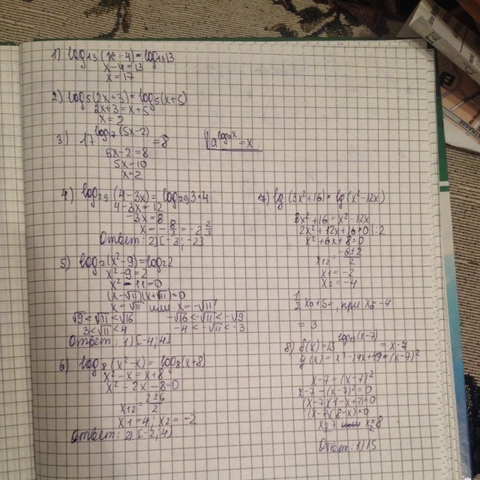 1) log₁₃(x-4)=log₁₃13
x-4=13
x=17
2) log₅(2x+3)=log₅(x+5)
2x+3=x+5
x=2
3) 17^log₁₇(5x-2)=8
a^logₐx=x
5x-2=8
5x=10
x=2
4) log₂₉(4-3x)=log₂₉3·4
4-3x=12
3x=8
x=-8/3=-2 2/3
Ответ: 2) [-3; -2]
5) log₂(x²-9)=log₂2
x²-9=2
x²-11=0
(x-√11)(x+√11)=0
x=√11 или x=-√11
√9<√11<√16
-√16<-√11<-√9
3<√11<4
-4<-√11<-3
Ответ: 1) [-4;4]
6) log₈(x²-x)=log₈(x+8)
x²-x=x+8
x²-2x-8=0
x₁,₂=(2±6)/2
x₁=4, x₂=-2
Ответ: 2) [-2;4)
7) lg(3x²+16)=lg(x²-12x)
3x²+16=x²-12x
2x²+12x+16=0 |:2
x²+6x+8=0
x₁,₂=(-6±2)/2
x₁=-2
x₂=-4
при x₀=-4
= 3
8)
g(x)=x²-14x+49=(x-7)²
x-7=(x-7)²
x-7-(x-7)²=0
(x-7)(1-x+7)=0
(x-7)(8-x)=0
x=7 или x=8
Ответ: 1) 15